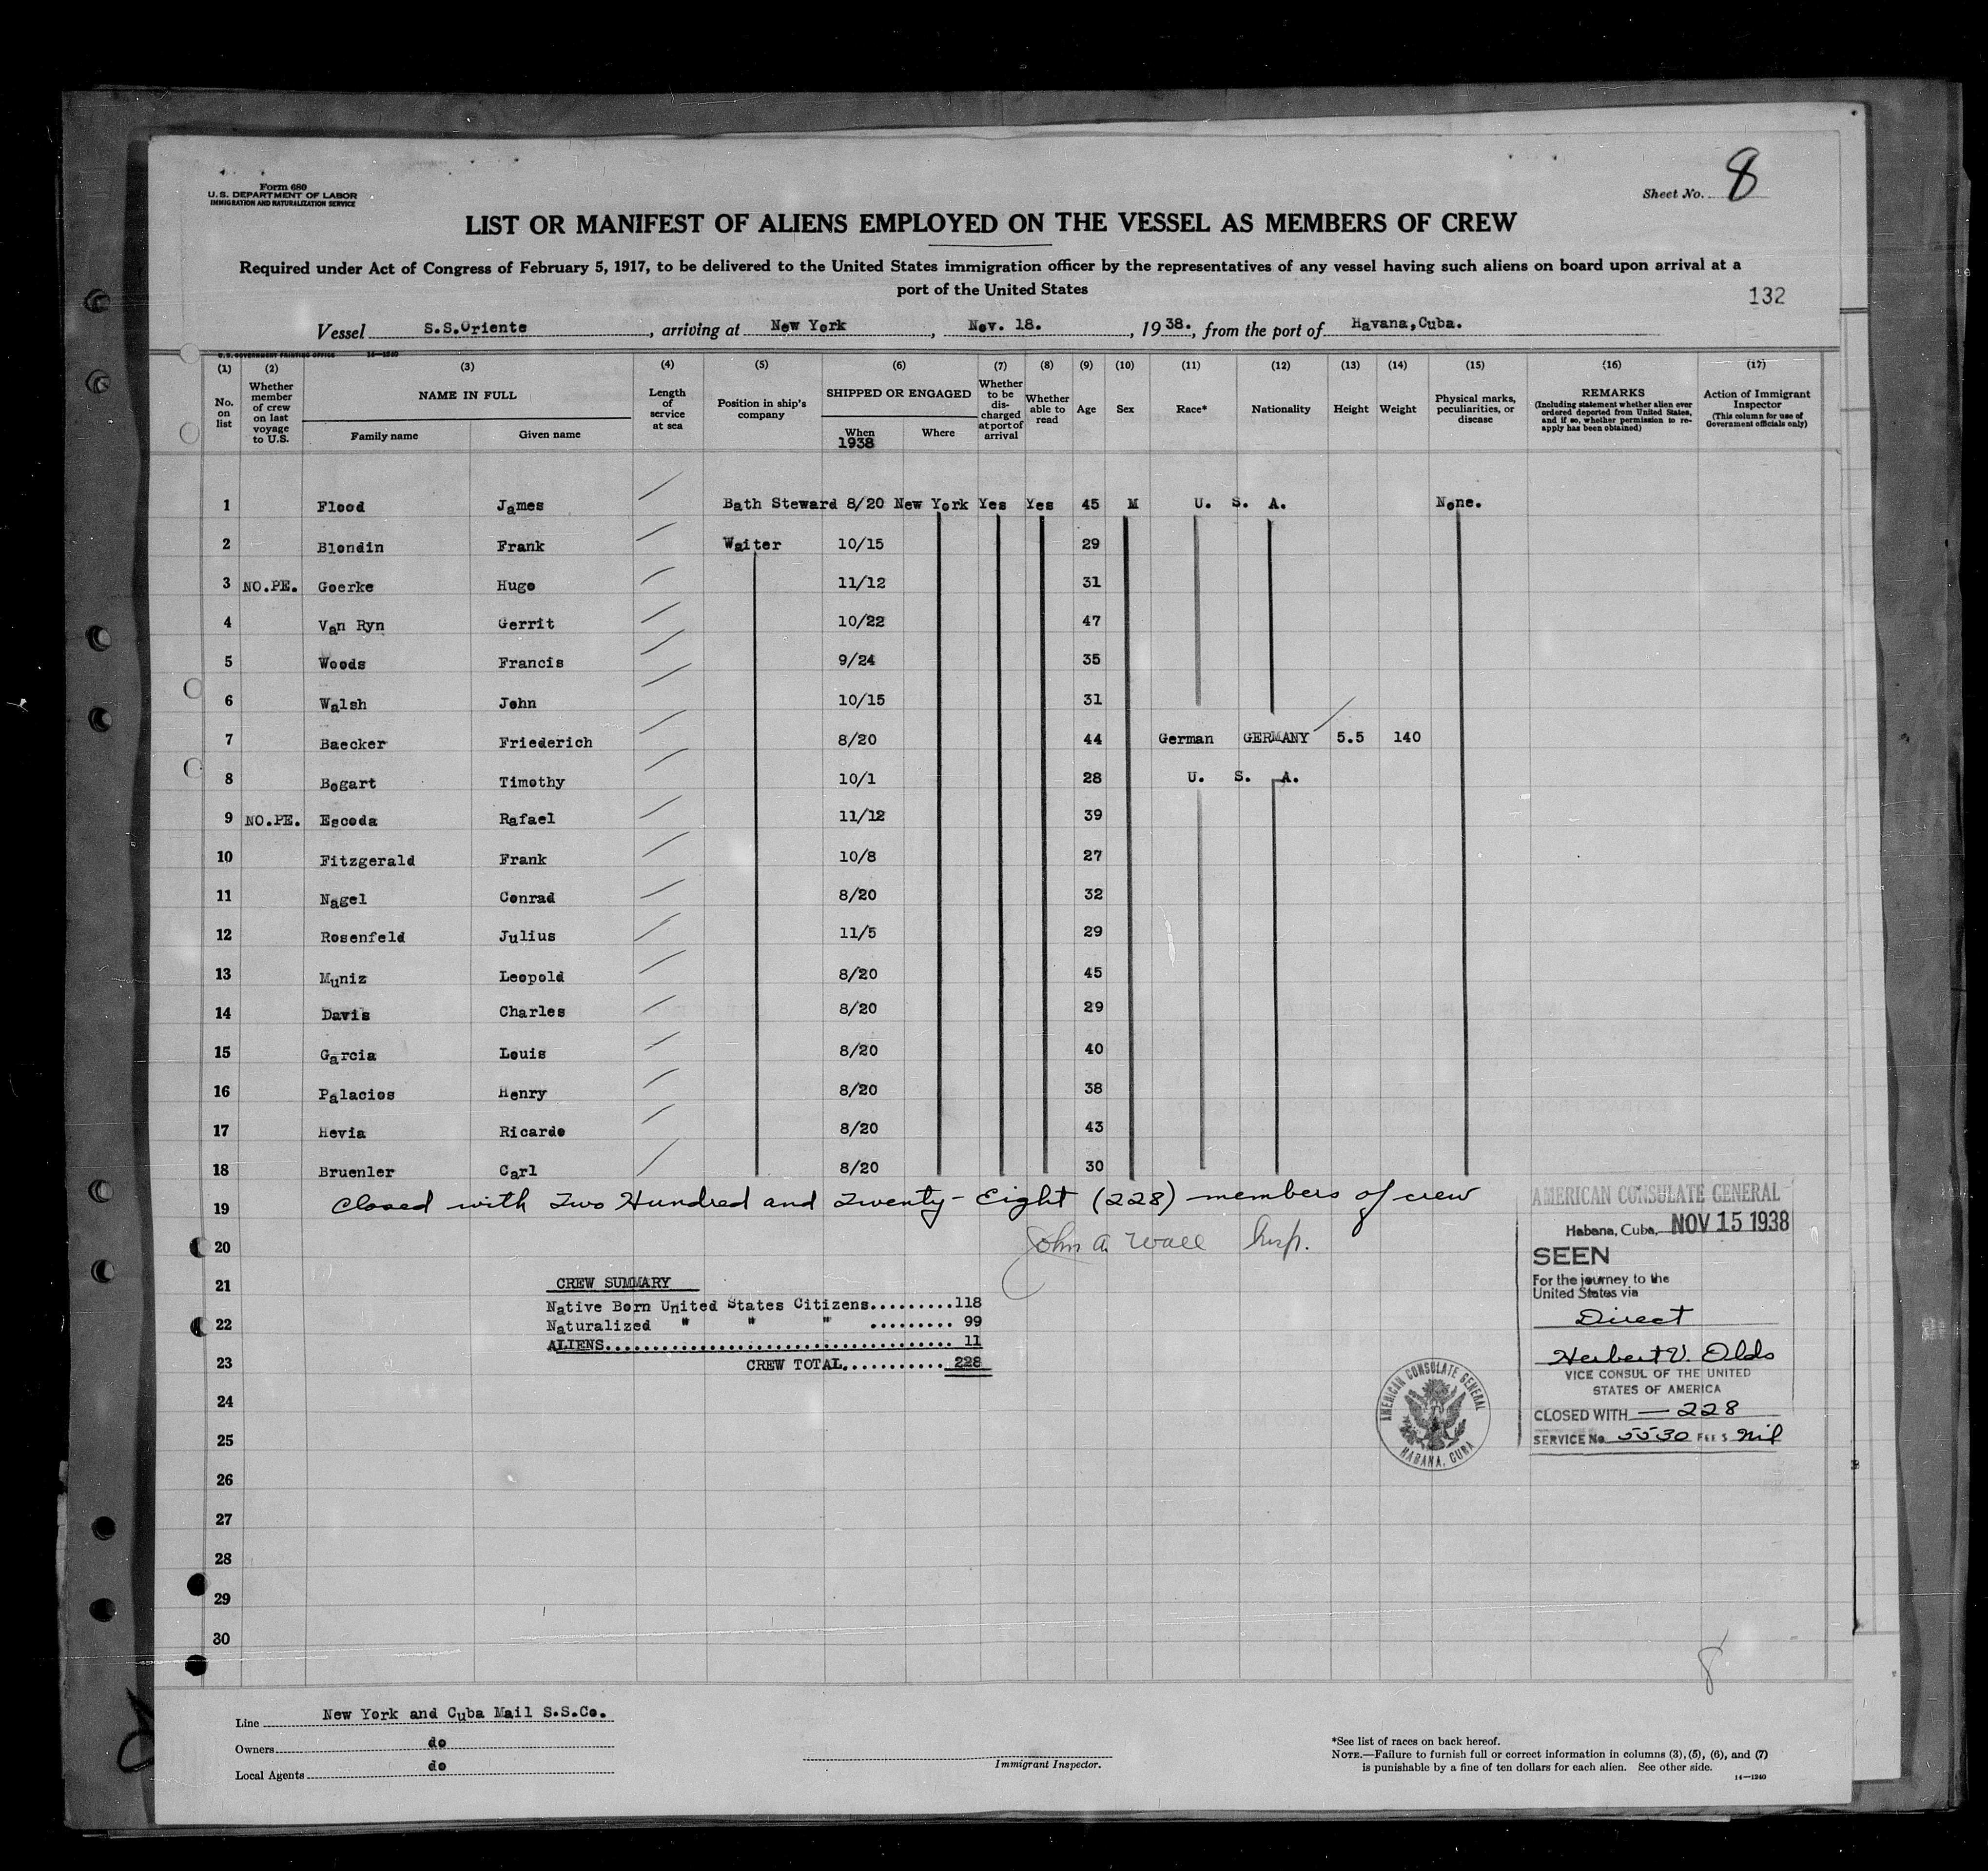 Form 680
U.S. DEPARTMENT OF LABOR
IMMIGRATION AND NATURALIZATION SERVICE
Sheet No. 8
LIST OR MANIFEST OF ALIENS EMPLOYED ON THE VESSEL AS MEMBERS OF CREW
Required under Act of Congress of February 5, 1917, to be delivered to the United States immigration officer by the representatives of any vessel having such aliens on board upon arrival at a
port of the United States
132
Vessel S.S.Oriente, arriving at New York, Nov. 18., 1938., from the port of Havana,Cuba.
U.S. GOVERNMENT PRINTING OFFICE 14—1240
(1) (2) (3) (4) (5) (6) (7) (8) (9) (10) (11) (12) (13) (14) (15) (16) (17)
No. on list
Whether member of crew on last voyage to U.S.
NAME IN FULL
Family name Given name
Length of service at sea
Position in ship's company
SHIPPED OR ENGAGED
When 1938 Where
Whether to be discharged at port of arrival
Whether able to read
Age
Sex
Race*
Nationality
Height
Weight
Physical marks, peculiarities, or disease
REMARKS
(Including statement whether alien ever ordered deported from United States, and if so, whether permission to reapply has been obtained)
Action of Immigrant Inspector
(This column for use of Government officials only)
1 Flood James Bath Steward 8/20 New York Yes Yes 45 M U. S. A. None.
2 Blondin Frank Waiter 10/15 29
3 NO.PE. Goerke Hugo 11/12 31
4 Van Ryn Gerrit 10/22 47
5 Woods Francis 9/24 35
6 Walsh John 10/15 31
7 Baecker Friederich 8/20 44 German GERMANY 5.5 140
8 Bogart Timothy 10/1 28 U. S. A.
9 NO.PE. Escoda Rafael 11/12 39
10 Fitzgerald Frank 10/8 27
11 Nagel Conrad 8/20 32
12 Rosenfeld Julius 11/5 29
13 Muniz Leopold 8/20 45
14 Davis Charles 8/20 29
15 Garcia Louis 8/20 40
16 Palacios Henry 8/20 38
17 Hevia Ricardo 8/20 43
18 Bruenler Carl 8/20 30
19 Closed with Two Hundred and Twenty-Eight (228) members of crew
20 John A. Wall Insp.
21 CREW SUMMARY
Native Born United States Citizens.........118
22 Naturalized " " " ......... 99
ALIENS..................................... 11
23 CREW TOTAL...........228
24
25
26
27
28
29
30
AMERICAN CONSULATE GENERAL
Habana, Cuba, NOV 15 1938
SEEN
For the journey to the
United States via
Direct
Herbert V. Olds
VICE CONSUL OF THE UNITED
STATES OF AMERICA
CLOSED WITH — 228
SERVICE No. 5530 FEE $ Nil
AMERICAN CONSULATE GENERAL
HABANA, CUBA
8
Line New York and Cuba Mail S.S.Co.
Owners do
Local Agents do
Immigrant Inspector.
*See list of races on back hereof.
NOTE.—Failure to furnish full or correct information in columns (3), (5), (6), and (7)
is punishable by a fine of ten dollars for each alien. See other side.
14—1240